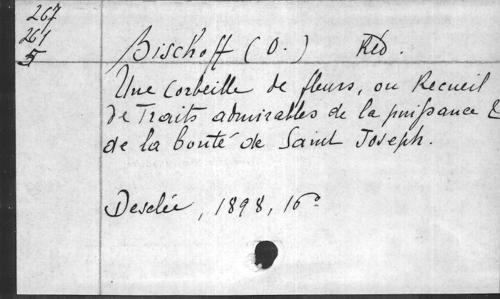 267
261
5
Bischoff (O.) Réd.
Une Corbeille de fleurs, ou Recueil
de Traits admirables de la puissance &
de la bonté de Saint Joseph.
Desclée, 1898, 16°